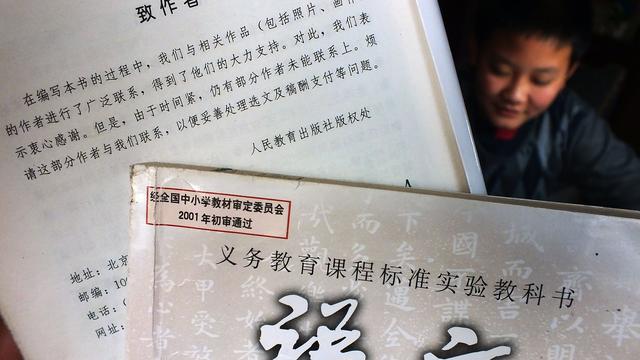 致作者
在编写本书的过程中，我们与相关作品（包括照片、画作
的作者进行了广泛联系，得到了他们的大力支持。对此，我们表
示衷心感谢。但是，由于时间紧，仍有部分作者未能联系上。烦
请这部分作者与我们联系，以便妥善处理选文及稿酬支付等问题。
人民教育出版社版权处
地址：北京
邮编：10
电话：（
网址：
经全国中小学教材审定委员会
2001年初审通过
义务教育课程标准实验教科书
语文